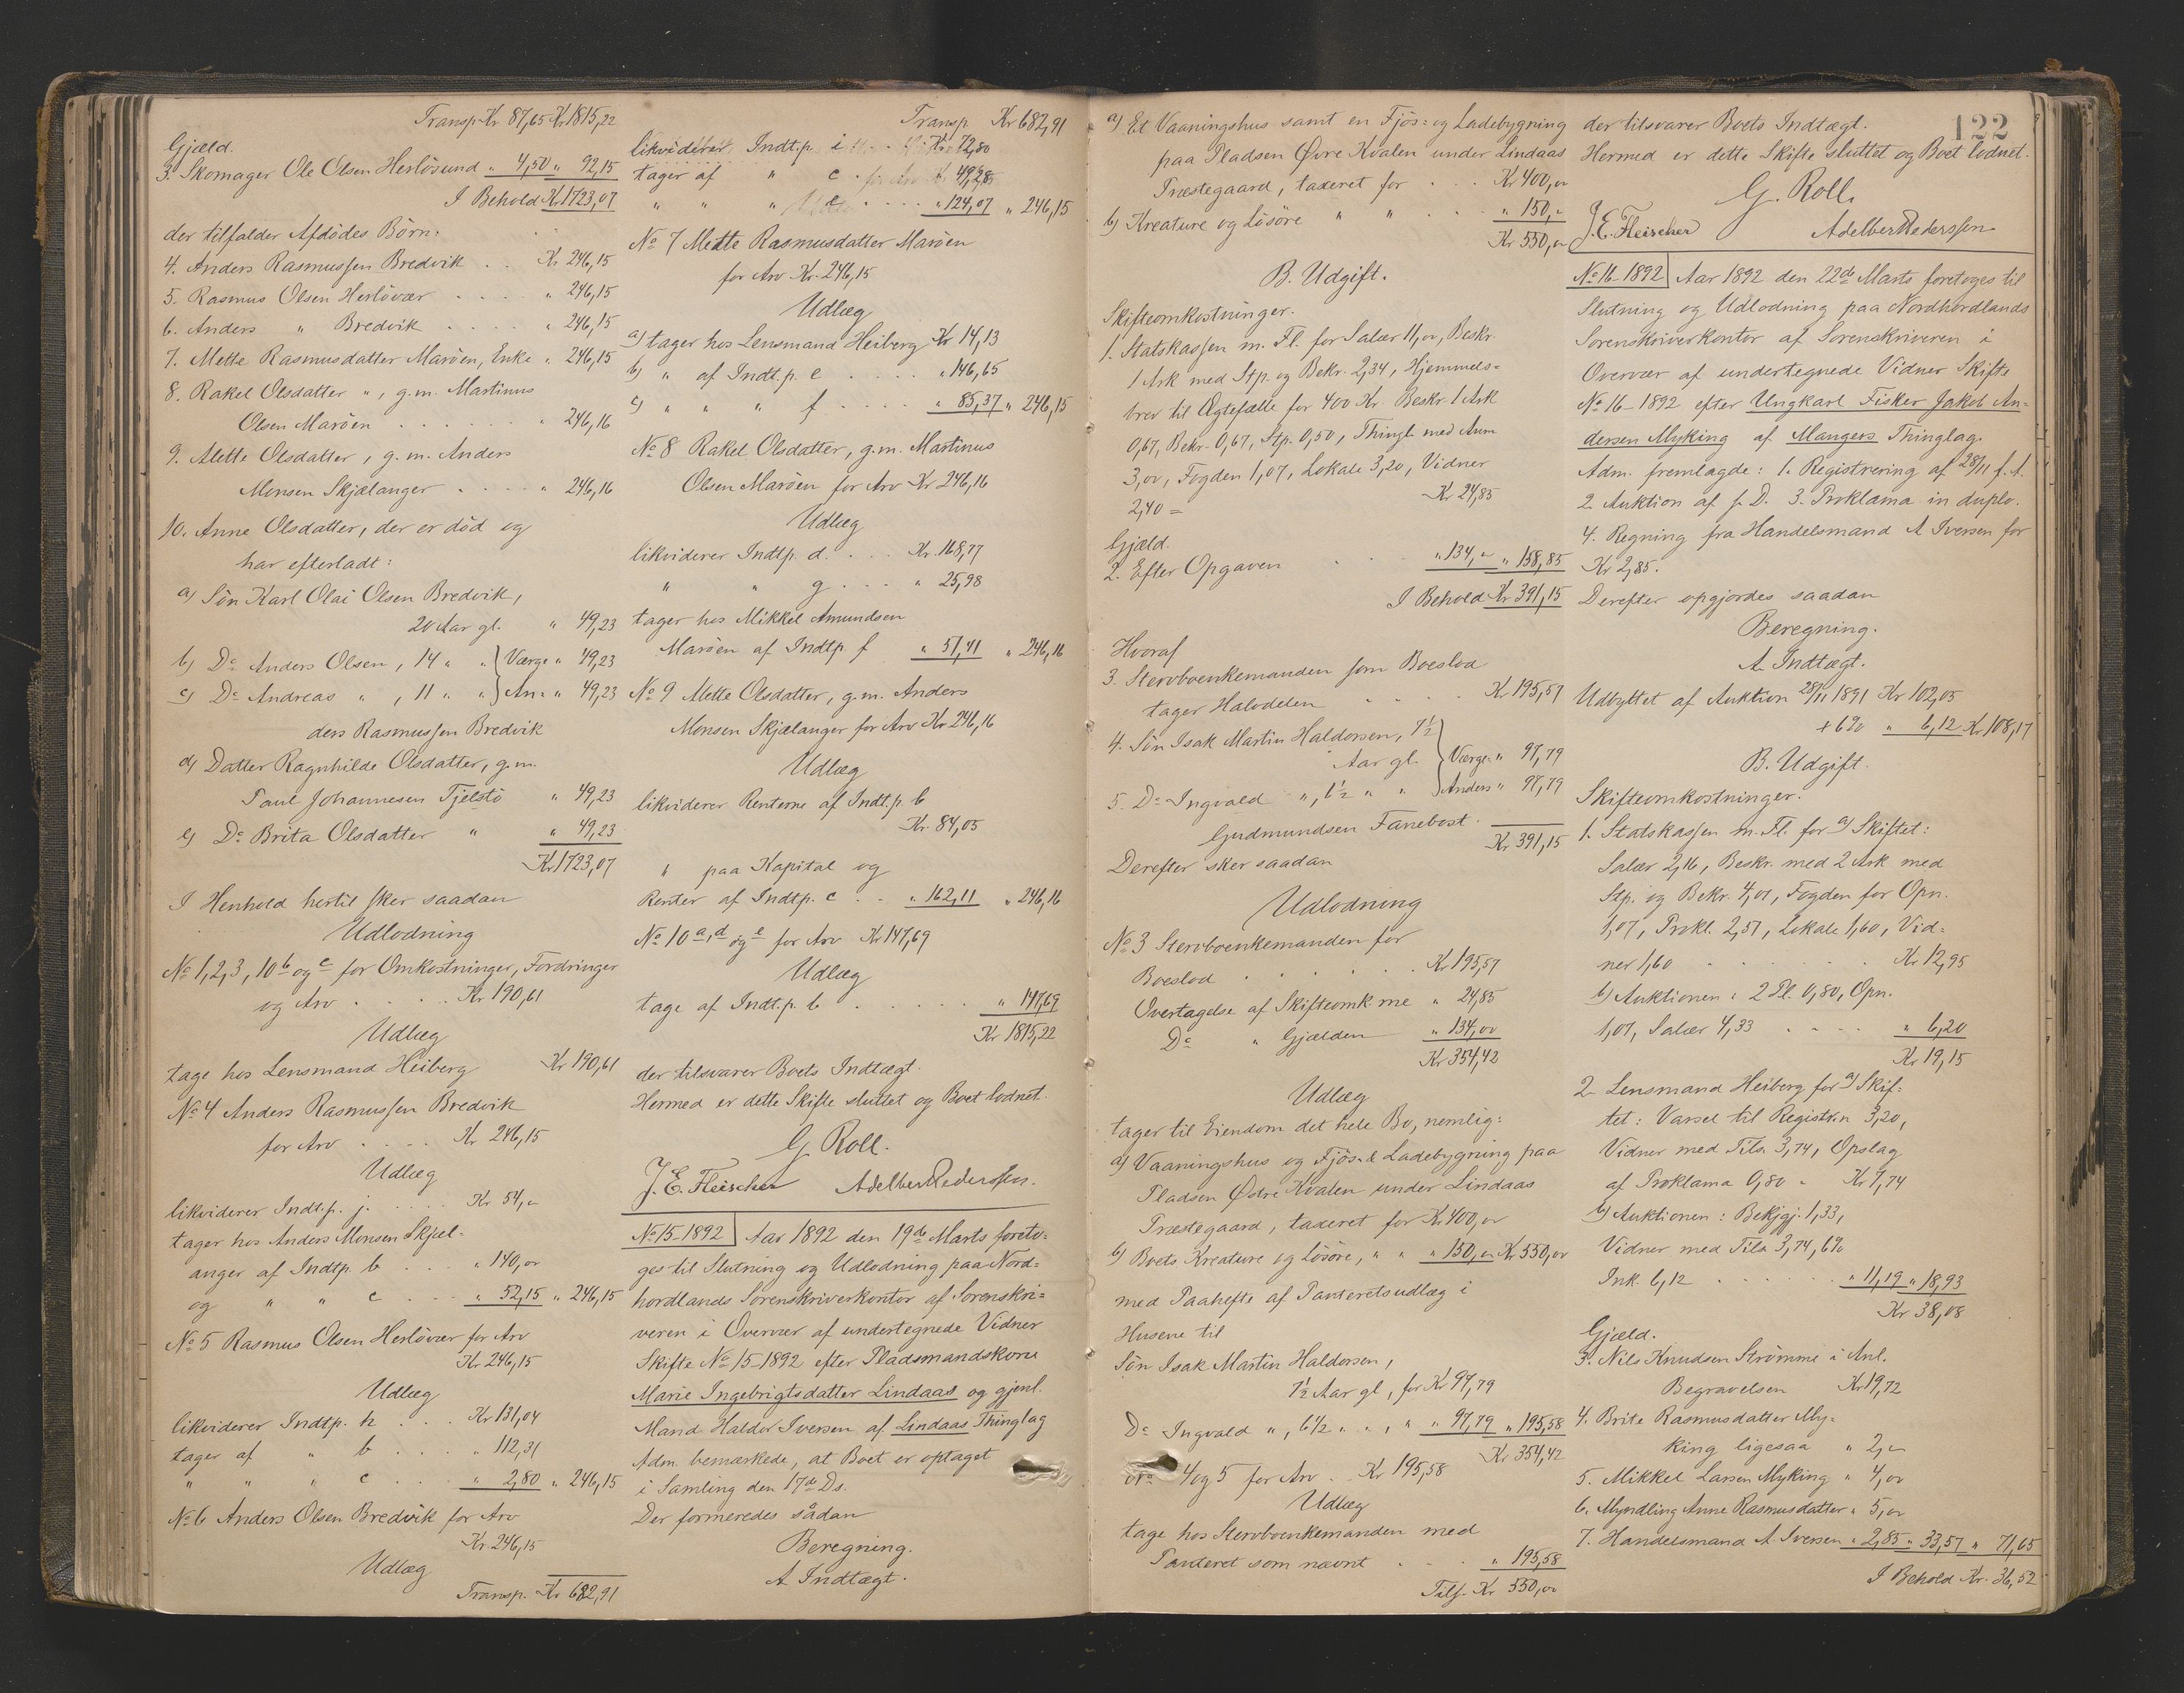 Transp. Kr 87,65 Kr 1815,22
Gjæld.
3. Skomager Ole Olsen Herlösund " 4,50 " 92,15
I Behold Kr 1723,07
der tilfalder Afdödes Börn:
4. Anders Rasmussen Bredvik . . Kr 246,15
5. Rasmus Olsen Herlövær . . . . " 246,15
6. Anders " Bredvik . . . . " 246,15
7. Mette Rasmusdatter Maröen, Enke " 246,15
8. Rakel Olsdatter ", g. m. Martinus
Olsen Maröen . . . . . . " 246,16
9. Alette Olsdatter, g. m. Anders
Monsen Skjælanger . . . . " 246,16
10. Anne Olsdatter, der er död og
har efterladt:
a) Sön Karl Olai Olsen Bredvik,
20 Aar gl. " 49,23
b) Do Anders Olsen, 14 " " } Værge " 49,23
c) Do Andreas " , 11 " " } An= " 49,23
ders Rasmussen Bredvik
d) Datter Ragnhilde Olsdatter, g. m.
Paul Johannesen Tjelstö " 49,23
e) Do Brita Olsdatter " " 49,23
Kr 1723,07
I Henhold hertil sker saadan
Udlodning
No 1, 2, 3, 10 b og c for Omkostninger, Fordringer
og Arv . . . . Kr 190,61
Udlæg
tage hos Lensmand Heiberg Kr 190,61
No 4 Anders Rasmussen Bredvik
for Arv . . . . Kr 246,15
Udlæg
likviderer Indt.p. j. . . . . Kr 54,"
tager hos Anders Monsen Skjæl-
anger af Indtp. b . . . " 140,00
og " " c . . . " 52,15 " 246,15
No 5 Rasmus Olsen Herlövær for Arv
Kr 246,15
Udlæg
likviderer Indtp. h . . . Kr 131,04
tager af " b . . . . " 112,31
" " " c . . . " 2,80 " 246,15
No 6 Anders Olsen Bredvik for Arv
Kr 246,15
Udlæg
Transp. Kr 682,91
Transp Kr 682,91
likviderer Indt.p. i . . . Kr 72,80
tager af " c . 49,28
" " " e . . . . " 124,07 " 246,15
No 7 Mette Rasmusdatter Maröen
for Arv Kr 246,15
Udlæg
a) tager hos Lensmand Heiberg Kr 14,13
b) " af Indt.p. e . . . . " 146,65
c) " " " f . . . . " 85,37 " 246,15
No 8 Rakel Olsdatter, g. m. Martinus
Olsen Maröen for Arv Kr 246,16
Udlæg
likviderer Indtp. d. . . . Kr. 168,77
" " g . . . " 25,98
tager hos Mikkel Amundsen
Maröen af Indtp. f " 51,41 " 246,16
No 9 Alette Olsdatter, g. m. Anders
Monsen Skjælanger for Arv Kr 246,16
Udlæg
likviderer Renterne af Indt.p. b
Kr. 84,05
" paa Kapital og
Renter af Indtp. c . . " 162,11 " 246,16
No 10 a, d og e for Arv Kr 147,69
Udlæg
tage af Indt.p. b . . . . . . " 147,69
Kr 1815,22
der tilsvarer Boets Indtægt.
Hermed er dette Skifte sluttet og Boet lodnet.
G. Roll.
J. E. Fleischer Adelber Pederssen.
No 15-1892 Aar 1892 den 19de Marts foreto-
ges til Slutning og Udlodning paa Nord=
hordlands Sorenskriverkontor af Sorenskri=
veren i Overvær af undertegnede Vidner
Skifte No 15-1892 efter Pladsmandskone
Marie Ingebrigtsdatter Lindaas og gjenl.
Mand Haldor Iversen af Lindaas Thinglag
Adm. bemærkede, at Boet er optaget
i Samling den 17de Ds.
Der formeredes sådan
Beregning.
A Indtægt.
a) Et Vaaningshus samt en Fjös= og Ladebygning
paa Pladsen Øvre Kvalen under Lindaas
Præstegaard, taxeret for . . . Kr 400,00
b) Kreature og Lösöre " " . . . " 150,"
Kr 550,00
B. Udgift.
Skifteomkostninger.
1. Statskassen m. Fl. for Salær 11,00, Beskr.
1 Ark med Stp. og Bekr. 2,34, Hjemmels=
brev til Ægtefælle for 400 Kr. Beskr. 1 Ark
0,67, Bekr. 0,67, Stp. 0,50, Thingl. med Anm
3,00, Fogden 1,07, Lokale 3,20, Vidner
2,40 = Kr 24,85
Gjæld.
2. Efter Opgaven . . . " 134," " 158,85
I Behold Kr 391,15
Hvoraf
3. Stervboenkemanden som Boeslod
tager Halvdelen . . . . Kr 195,57
4. Sön Isak Martin Haldorsen, 7½
Aar gl. } Værge " 97,79
5. Do Ingvald ", 6½ " " } Anders " 97,79
Gudmundsen Fanebost. Kr 391,15
Derefter sker saadan
Udlodning
No 3 Stervboenkemanden for
Boeslod . . . . . . Kr 195,57
Overtagelse af Skifteomk. ne " 24,85
Do " Gjælden " 134,00
Kr 354,42
Udlæg
tager til Eiendom det hele Bo, nemlig:
a) Vaaningshus og Fjös- & Ladebygning paa
Pladsen Ødre Kvalen under Lindaas
Præstegaard, taxeret for Kr 400,00
b) Boets Kreature og Lösöre, " " " 150,00 Kr 550,00
med Paahefte af Panteretsudlæg i
Husene til
Sön Isak Martin Haldorsen,
7½ Aar gl, for Kr 97,79
Do Ingvald ", 6½ " " , " " 97,79 " 195,58
Kr 354,42
No 4 og 5 for Arv . Kr 195,58
Udlæg
tage hos Stervboenkemanden med
Panteret som nævnt . . . " 195,58
Tils. Kr 550,00
122
der tilsvarer Boets Indtægt.
Hermed er dette Skifte sluttet og Boet lodnet.
G. Roll.
J. E. Fleischer Adelber Pederssen
No 16-1892 Aar 1892 den 22de Marts foretoges til
Slutning og Udlodning paa Nordhordlands
Sorenskriverkontor af Sorenskriveren i
Overvær af undertegnede Vidner Skifte
No 16-1892 efter Ungkarl Fisker Jakob An=
dersen Myking af Mangers Thinglag.
Adm. fremlagde: 1. Registrering af 28/11 f. A.
2. Auktion af s. D. 3. Proklama in duplo.
4. Regning fra Handelsmand A Iversen for
Kr 2,85.
Derefter opgjordes saadan
Beregning.
A. Indtægt.
Udbyttet af Auktion 28/11 1891 Kr 102,05
+ 6% " 6,12 Kr 108,17
B. Udgift.
Skifteomkostninger.
1. Statskassen m. Fl. for a) Skiftet:
Salær 2,16, Beskr. med 2 Ark med
Stp. og Bekr. 4,01, Fogden for Opn.
1,07, Prokl. 2,51, Lokale 1,60, Vid=
ner 1,60 . . . . . . Kr 12,95
b) Auktionen: 2 Pl. 0,80, Opn.
1,07, Salær 4,33 . . . . " 6,20
Kr 19,15
2. Lensmand Heiberg for a) Skif=
tet: Varsel til Registr.n 3,20,
Vidner med Tils. 3,74, Opslag
af Proklama 0,80 = Kr 7,74
b) Auktionen: Bekjgj. 1,33,
Vidner med Tils 3,74, 6%
Ink. 6,12 . . . . . . " 11,19 " 18,93
Kr 38,08
Gjæld.
3. Nils Knudsen Strömme i Anl.
Begravelsen Kr 19,72
4. Brite Rasmusdatter My=
king ligesaa " 2,"
5. Mikkel Larsen Myking " 4,00
6. Myndling Anne Rasmusdatter " 5,00
7. Handelsmand A. Iversen " 2,85 " 33,57 " 71,65
I Behold Kr. 36,52